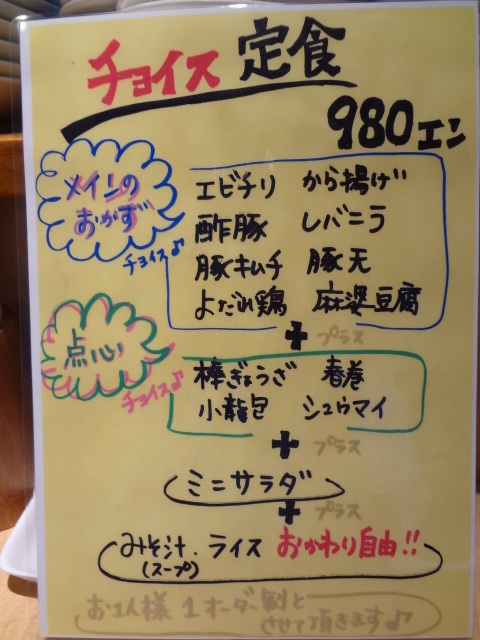 チョイス 定食
980エン
メインの
おかず
チョイス♪
エビチリ から揚げ
酢豚 レバニラ
豚キムチ 豚天
よだれ鶏 麻婆豆腐
+ プラス
点心
チョイス♪
棒ぎょうざ 春巻
小龍包 シュウマイ
+ プラス
ミニサラダ
+ プラス
みそ汁.ライス おかわり自由!!
(スープ)
お1人様 1オーダー制と
させて頂きます♪